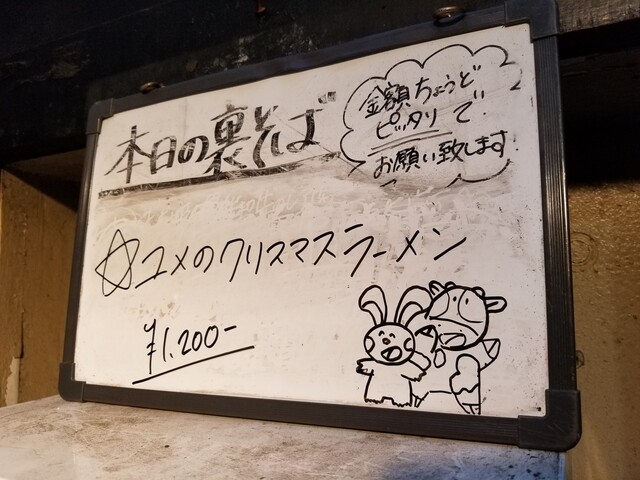 本日の裏そば
金額ちょうど
ピッタリで
お願い致します!
☆ユメのクリスマスラーメン
¥1.200-